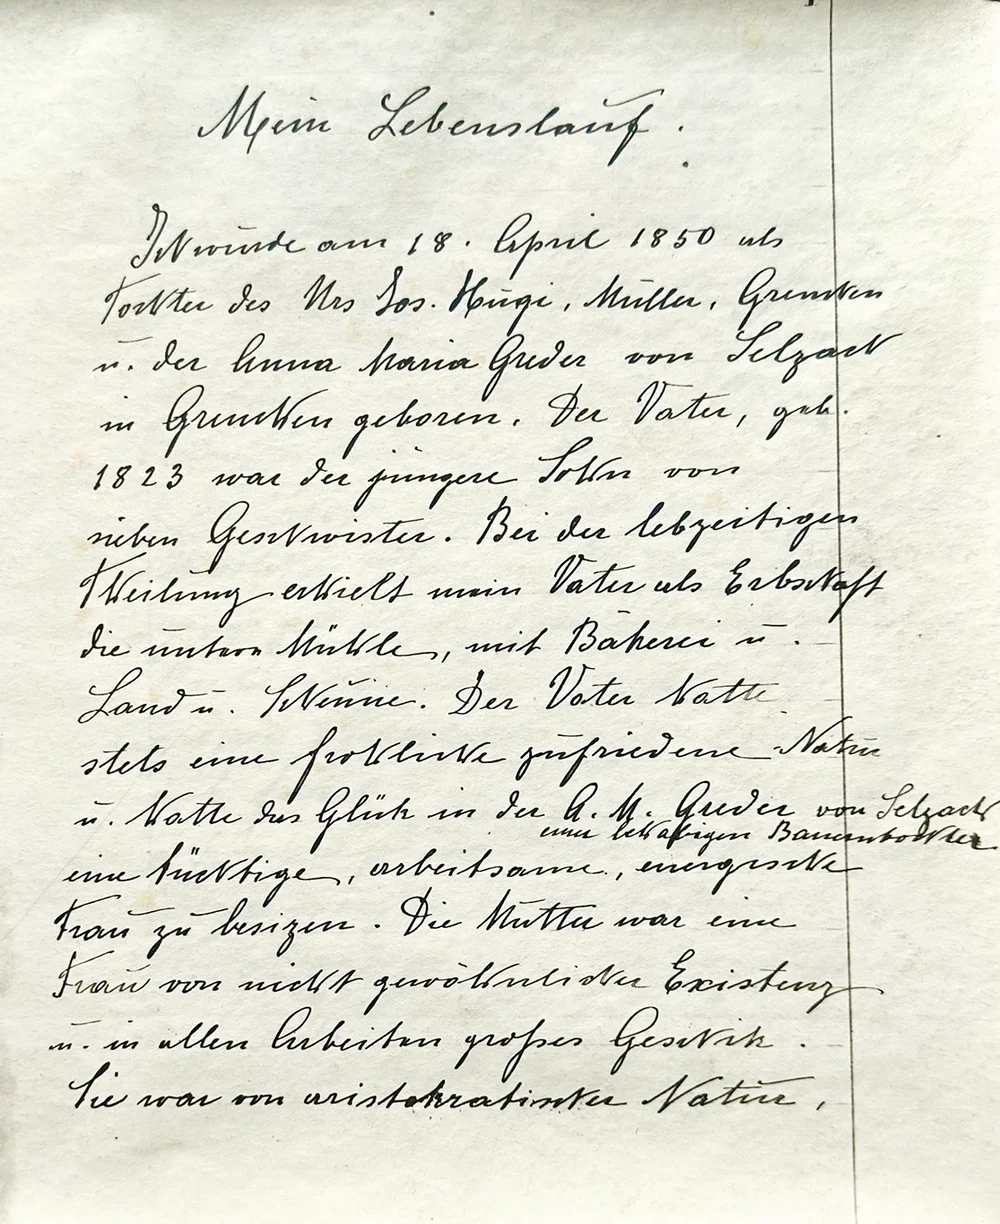 Mein Lebenslauf.
Ich wurde am 18. April 1850 als
Tochter des Urs Jos. Hugi, Müller, Grenchen
u. der Anna Maria Greder von Selzach
in Grenchen geboren. Der Vater, geb.
1823 war der jüngere Sohn von
sieben Geschwister. Bei der lebzeitigen
Theilung erhielt mein Vater als Erbschaft
die untere Mühle, mit Bäkerei u.
Land u. Scheune. Der Vater hatte
stets eine frohliche zufriedene Natur
u. hatte das Glük in der A. M. Greder von Selzach
einer lebhabigen Bauerntochter
eine tüchtige, arbeitsame, energische
Frau zu besizen. Die Mutter war eine
Frau von nicht gewöhnlicher Existenz
u. in allen Arbeiten großes Geschik.
Sie war von aristokratischer Natur,